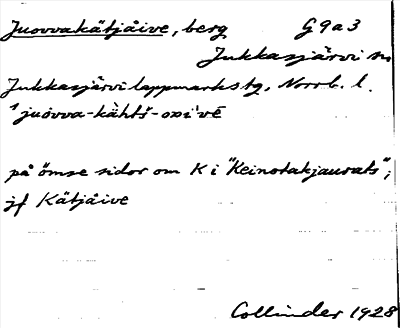 Juovvakätjåive, berg G9a3
Jukkasjärvi sn
Jukkasjärvi lappmarkstg, Norrb. l.
på ömse sidor om K i "Keinotakjaurats",
jf Kätjåive
Collinder 1928